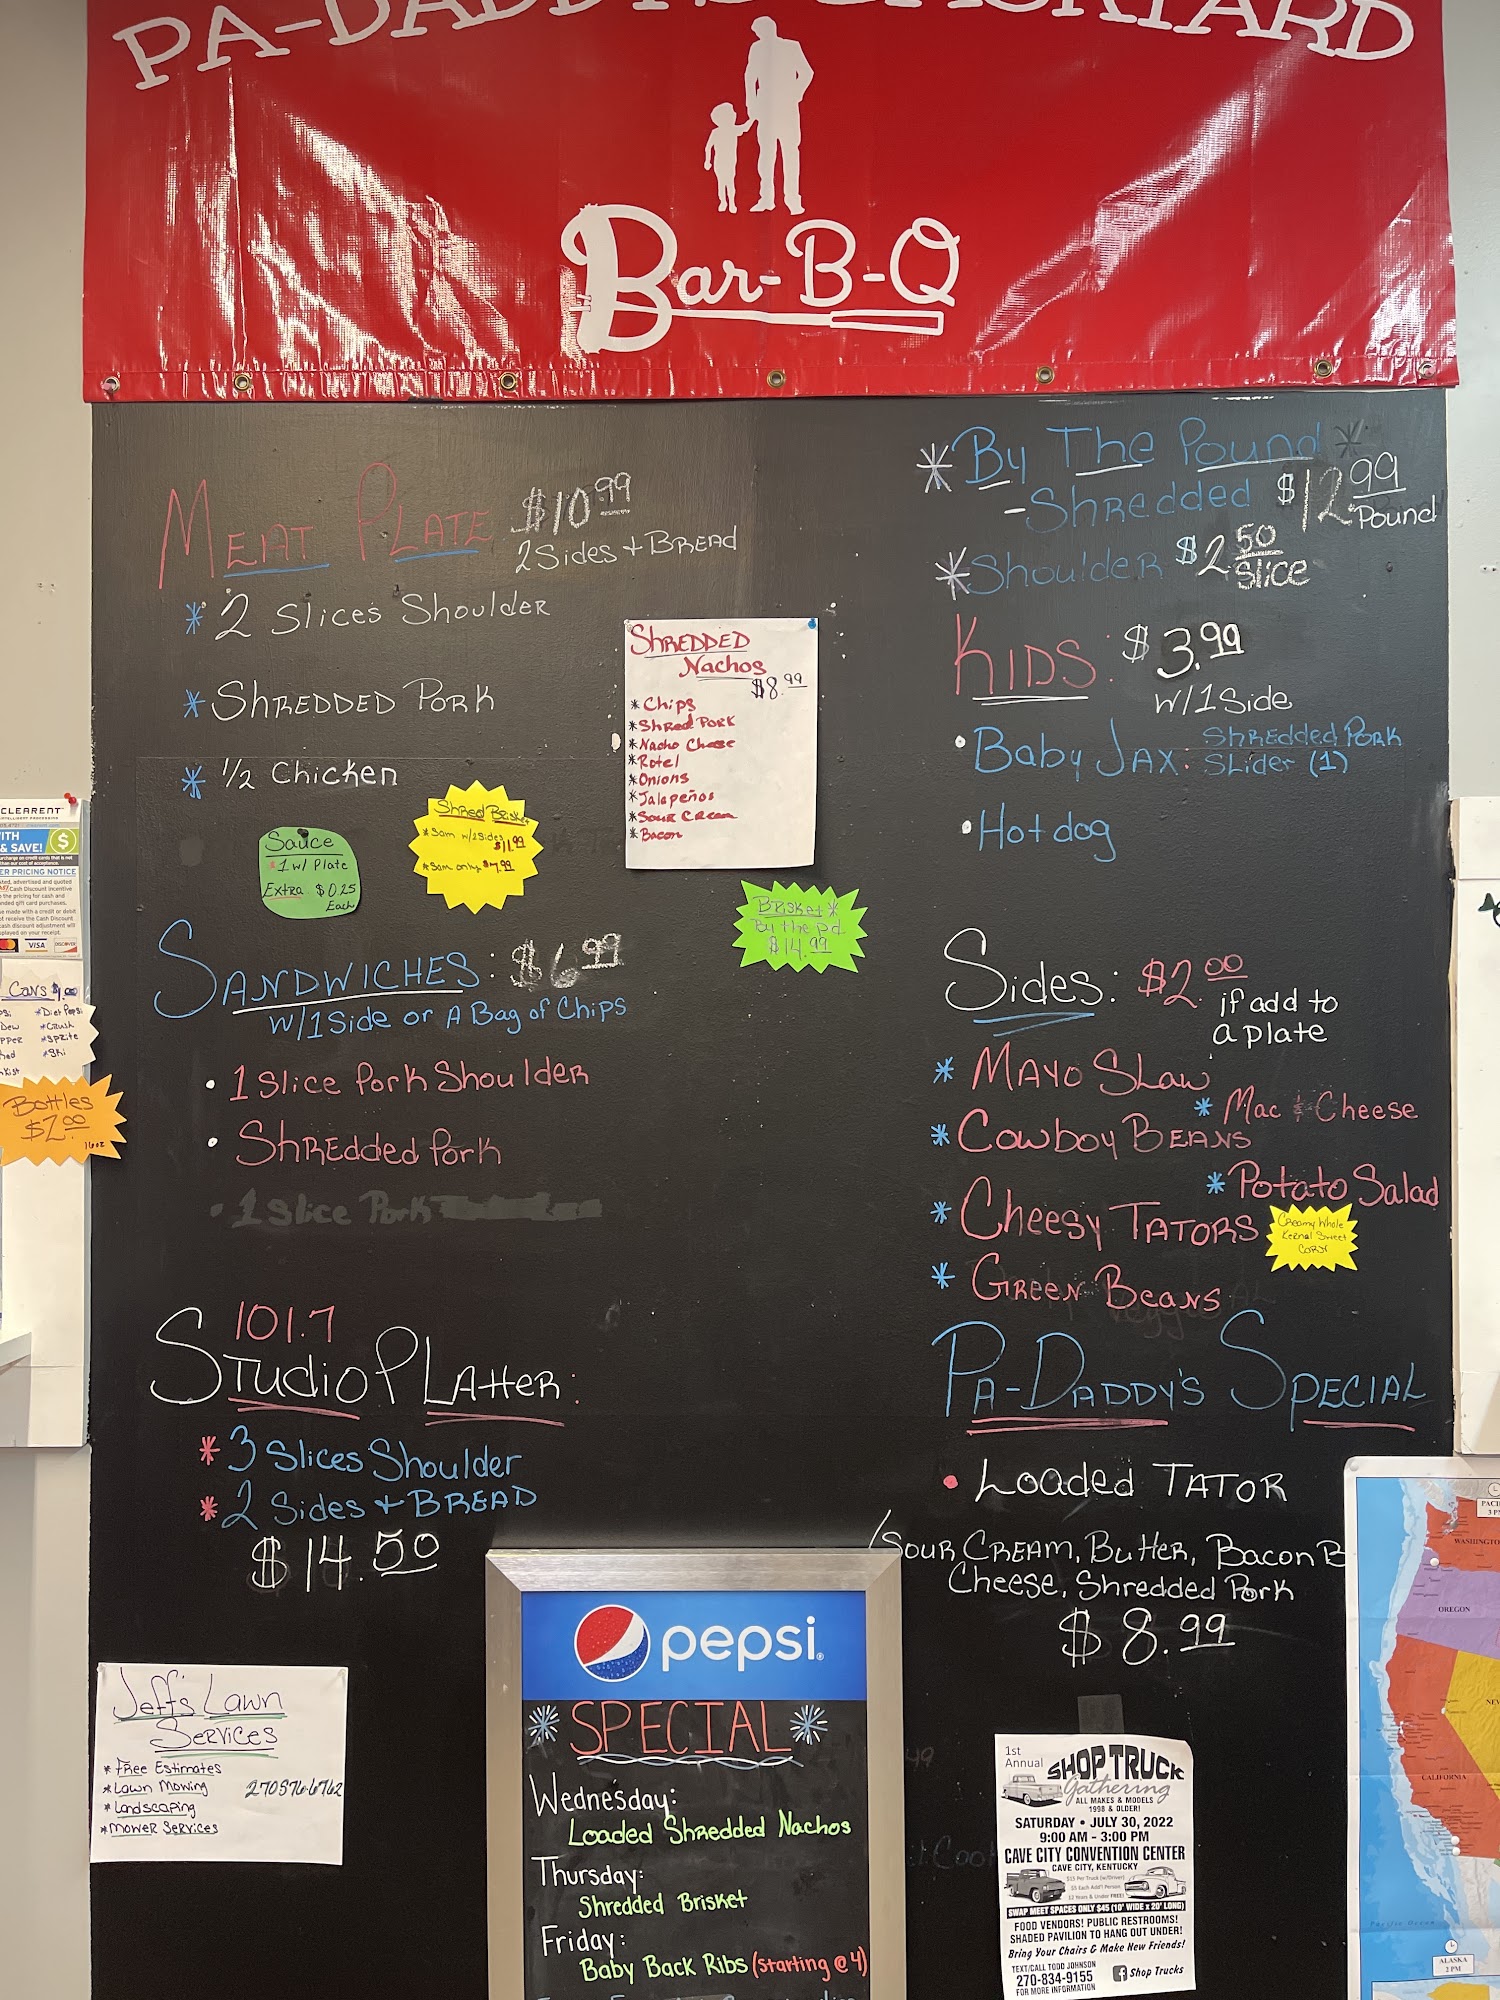 PA-DADDY'S BACKYARD
Bar-B-Q
MEAT PLATE $10.99
2 Sides + BREAD
* 2 Slices Shoulder
* SHREDDED PORK
* 1/2 Chicken
Sauce
* 1 w/ Plate
Extra $0.25
Each
Shred Brisket
* Sam w/2sides
$11.99
* Sam only $7.99
SHREDDED
Nachos
$8.99
* Chips
* Shred PORK
* Nacho Cheese
* Rotel
* Onions
* Jalapeños
* Sour Cream
* Bacon
Brisket *
By the pd
$14.99
SANDWICHES: $6.99
w/1 Side or A Bag of Chips
• 1 Slice Pork Shoulder
• Shredded Pork
• 1 Slice Pork
101.7
STUDIO PLATTER:
* 3 Slices Shoulder
* 2 Sides + BREAD
$14.50
* By The Pound *
- Shredded $12.99
Pound
* Shoulder $2.50
Slice
KIDS: $3.99
w/1 Side
• Baby JAX: Shredded Pork
Slider (1)
• Hot dog
Sides: $2.00
if add to
a plate
* MAYO SLAW
* Mac & Cheese
* COWBOY BEANS
* Potato Salad
* Cheesy TATORS
Creamy Whole
Kernal Sweet
Corn
* GREEN BEANS
PA-DADDY'S SPECIAL
• LOADED TATOR
/SOUR CREAM, BUTTER, BACON B
Cheese, Shredded Pork
$8.99
CLEARENT
& SAVE!
PRICING NOTICE
VISA
DISCOVER
Cans $1.00
* Diet Pepsi
Dew * Crush
* Sprite
* Ski
Bottles
$2.00
16oz
Jeff's Lawn
Services
* Free Estimates
* Lawn Mowing 270 576 6762
* Landscaping
* Mower Services
pepsi
* SPECIAL *
Wednesday:
Loaded Shredded Nachos
Thursday:
Shredded Brisket
Friday:
Baby Back Ribs (starting @ 4)
1st
Annual SHOP TRUCK
Gathering
ALL MAKES & MODELS
1998 & OLDER!
SATURDAY • JULY 30, 2022
9:00 AM - 3:00 PM
CAVE CITY CONVENTION CENTER
CAVE CITY, KENTUCKY
$15 Per Truck (w/Driver)
$5 Each Add'l Person
12 Years & Under FREE!
SWAP MEET SPACES ONLY $45 (10' WIDE x 20' LONG)
FOOD VENDORS! PUBLIC RESTROOMS!
SHADED PAVILION TO HANG OUT UNDER!
Bring Your Chairs & Make New Friends!
TEXT/CALL TODD JOHNSON
270-834-9155
FOR MORE INFORMATION
Shop Trucks
WASHINGTO
OREGON
CALIFORNIA
Pacific Ocean
ALASKA
2 PM